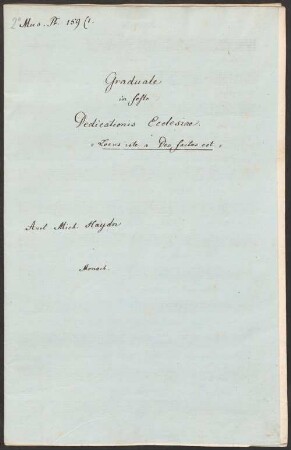 2° Mus. Pr. 159 (1.
Graduale
in festo
Dedicationis Ecclesiae.
„Locus iste a Deo factus est.“
Auct. Mich. Haydn
Monach.